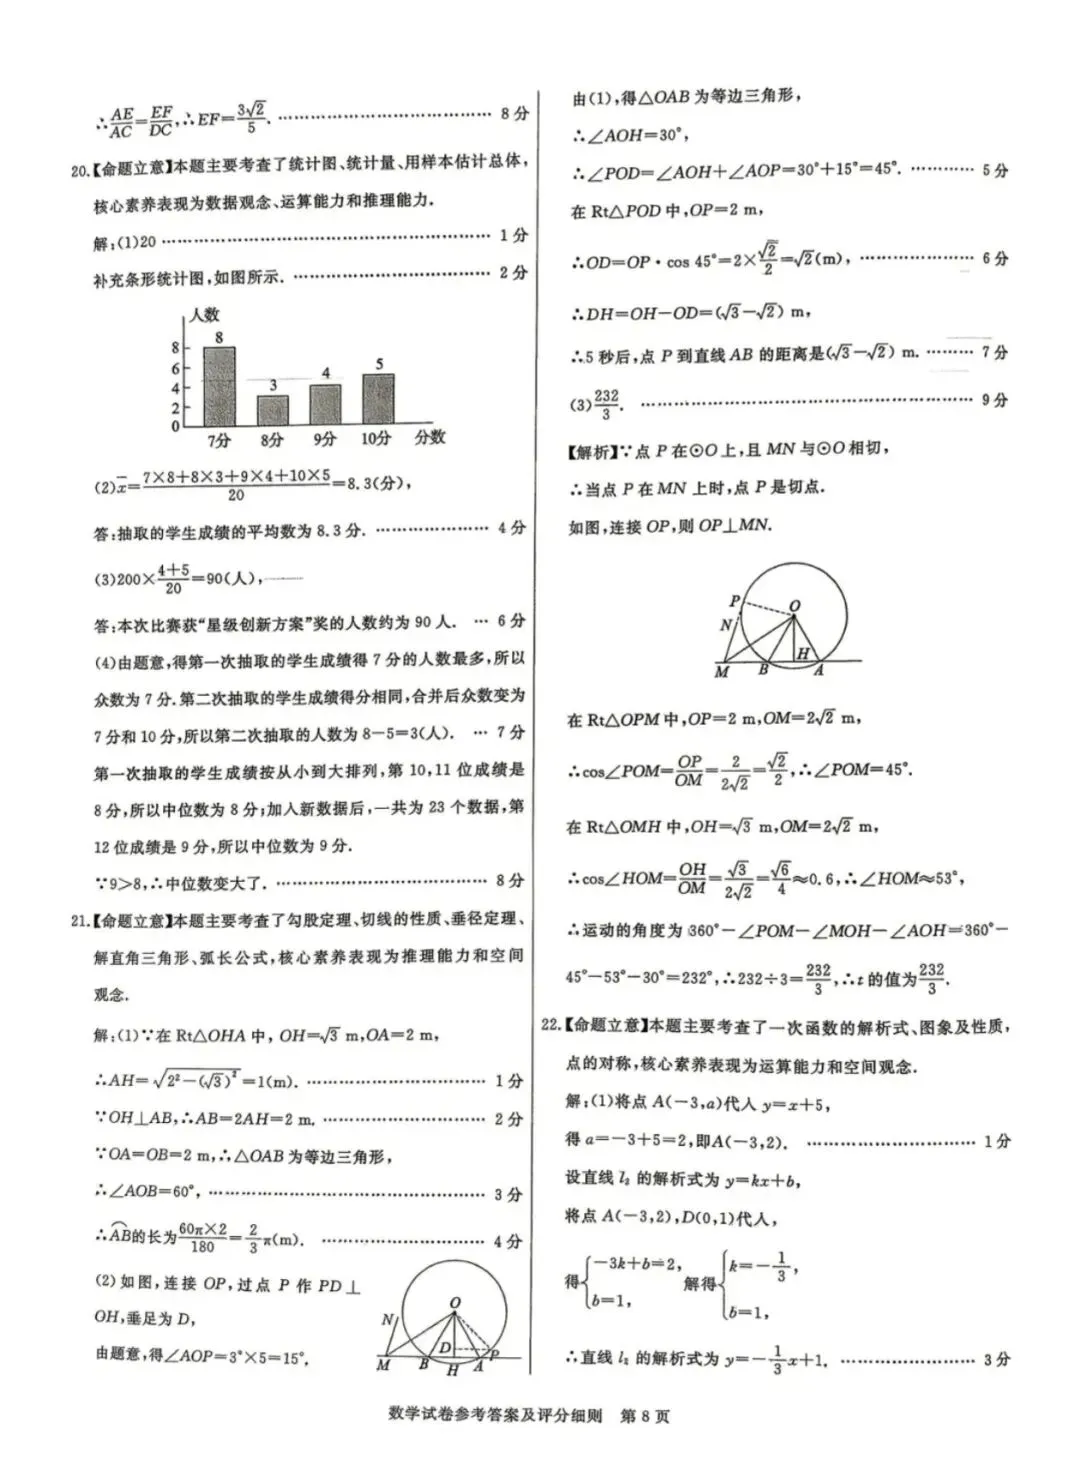 ∴AE/AC=EF/DC,∴EF=3√2/5. …… 8分
20.【命题立意】本题主要考查了统计图、统计量、用样本估计总体,
核心素养表现为数据观念、运算能力和推理能力.
解:(1)20 …… 1分
补充条形统计图,如图所示. …… 2分
人数
8
8
5
4
3
6
4
2
0
7分 8分 9分 10分 分数
(2)x̄=(7×8+8×3+9×4+10×5)/20=8.3(分),
答:抽取的学生成绩的平均数为8.3分. …… 4分
(3)200×(4+5)/20=90(人),
答:本次比赛获“星级创新方案”奖的人数约为90人. … 6分
(4)由题意,得第一次抽取的学生成绩得7分的人数最多,所以
众数为7分.第二次抽取的学生成绩得分相同,合并后众数变为
7分和10分,所以第二次抽取的人数为8-5=3(人). … 7分
第一次抽取的学生成绩按从小到大排列,第10,11位成绩是
8分,所以中位数为8分;加入新数据后,一共为23个数据,第
12位成绩是9分,所以中位数为9分.
∵9>8,∴中位数变大了. …… 8分
21.【命题立意】本题主要考查了勾股定理、切线的性质、垂径定理、
解直角三角形、弧长公式,核心素养表现为推理能力和空间
观念.
解:(1)∵在Rt△OHA中,OH=√3 m,OA=2 m,
∴AH=√(2²-(√3)²)=1(m). …… 1分
∵OH⊥AB,∴AB=2AH=2 m. …… 2分
∵OA=OB=2 m,∴△OAB为等边三角形,
∴∠AOB=60°, …… 3分
∴⌒AB的长为60π×2/180=2/3π(m). …… 4分
(2)如图,连接OP,过点P作PD⊥
OH,垂足为D,
由题意,得∠AOP=3°×5=15°.
O
N
D
P
M B H A
由(1),得△OAB为等边三角形,
∴∠AOH=30°,
∴∠POD=∠AOH+∠AOP=30°+15°=45°. …… 5分
在Rt△POD中,OP=2 m,
∴OD=OP·cos 45°=2×√2/2=√2(m), …… 6分
∴DH=OH-OD=(√3-√2) m,
∴5秒后,点P到直线AB的距离是(√3-√2) m. …… 7分
(3)232/3. …… 9分
【解析】∵点P在⊙O上,且MN与⊙O相切,
∴当点P在MN上时,点P是切点.
如图,连接OP,则OP⊥MN.
P
O
N
H
M B A
在Rt△OPM中,OP=2 m,OM=2√2 m,
∴cos∠POM=OP/OM=2/(2√2)=√2/2,∴∠POM=45°.
在Rt△OMH中,OH=√3 m,OM=2√2 m,
∴cos∠HOM=OH/OM=√3/(2√2)=√6/4≈0.6,∴∠HOM≈53°,
∴运动的角度为360°-∠POM-∠MOH-∠AOH=360°-
45°-53°-30°=232°,∴232÷3=232/3,∴t的值为232/3.
22.【命题立意】本题主要考查了一次函数的解析式、图象及性质,
点的对称,核心素养表现为运算能力和空间观念.
解:(1)将点A(-3,a)代人y=x+5,
得a=-3+5=2,即A(-3,2). …… 1分
设直线l₂的解析式为y=kx+b,
将点A(-3,2),D(0,1)代人,
得{-3k+b=2, b=1, 解得{k=-1/3, b=1,
∴直线l₂的解析式为y=-1/3x+1. …… 3分
数学试卷参考答案及评分细则 第8页